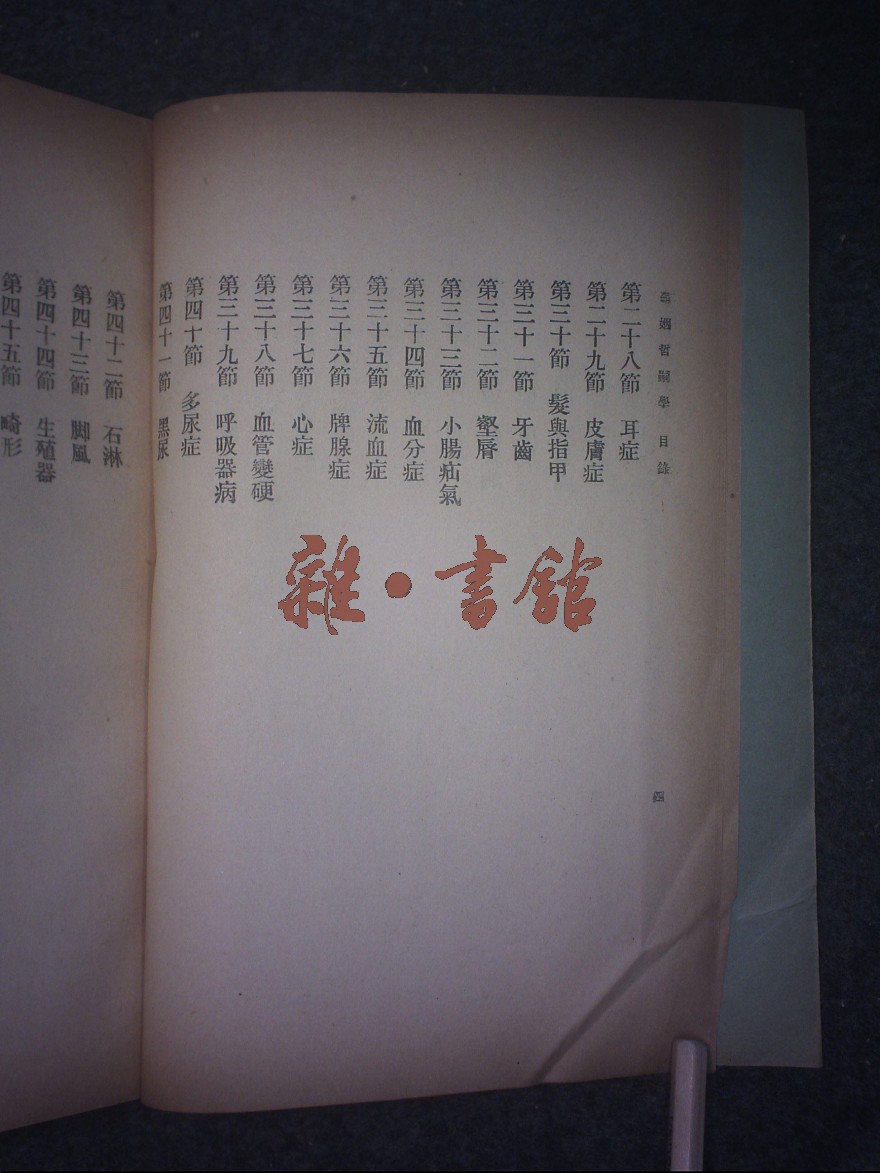 婚姻哲嗣學 目錄
第二十八節 耳症
第二十九節 皮膚症
第三十節 髮與指甲
第三十一節 牙齒
第三十二節 壑脣
第三十三節 小腸疝氣
第三十四節 血分症
第三十五節 流血症
第三十六節 脾腺症
第三十七節 心症
第三十八節 血管變硬
第三十九節 呼吸器病
第四十節 多尿症
第四十一節 黑尿
四
第四十二節 石淋
第四十三節 脚風
第四十四節 生殖器
第四十五節 畸形
雜·書館